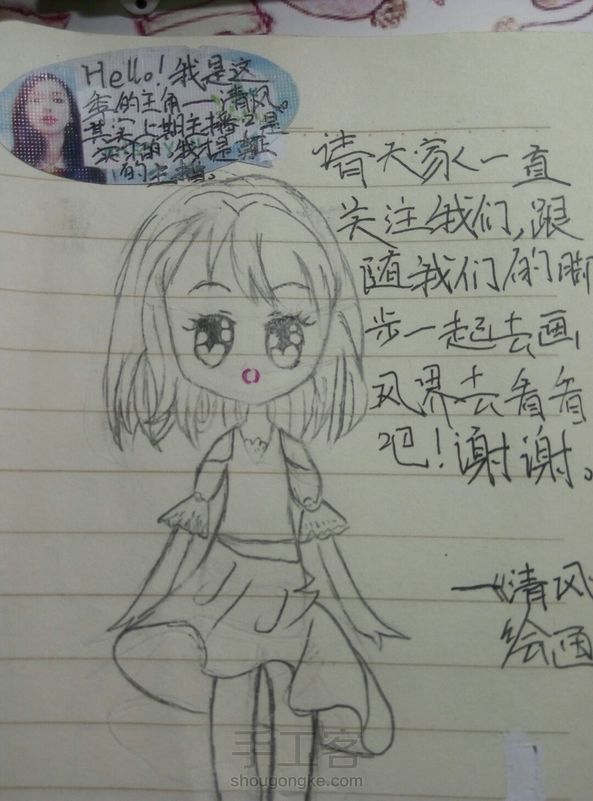 Hello！我是这
集的主角——清风。
其实上期主播也是
我才是真正
的主播。
请大家一直
关注我们，跟
随我们的脚
步一起去画，
风界去看看
吧！谢谢。
—《清风
绘画
手工客
shougongke.com